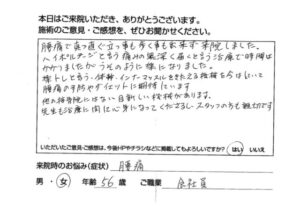 本日はご来院いただき、ありがとうございます。
施術のご意見・ご感想を、ぜひお聞かせください。
腰痛で真っ直ぐ立つ事も歩く事も出来ず来院しました。
ハイボルテージと言う痛みの奥深く届くと言う治療で時間は
かかりましたがうそのように楽になりました。
楽トレと言う、体幹、インナーマッスルをきたえる機械も今はとりいれて
腰痛の予防やダイエットに期待しています
他の接骨院にはない目新しい機械があります。
先生も治療に関に心身になってくださるし、スタッフの方も親切です
いただいたご意見ご感想は、今後HPやチラシなどに掲載してもよろしいですか? はい いいえ
来院時のお悩み(症状) 腰痛
男・女 年齢 56 歳 ご職業 会社員